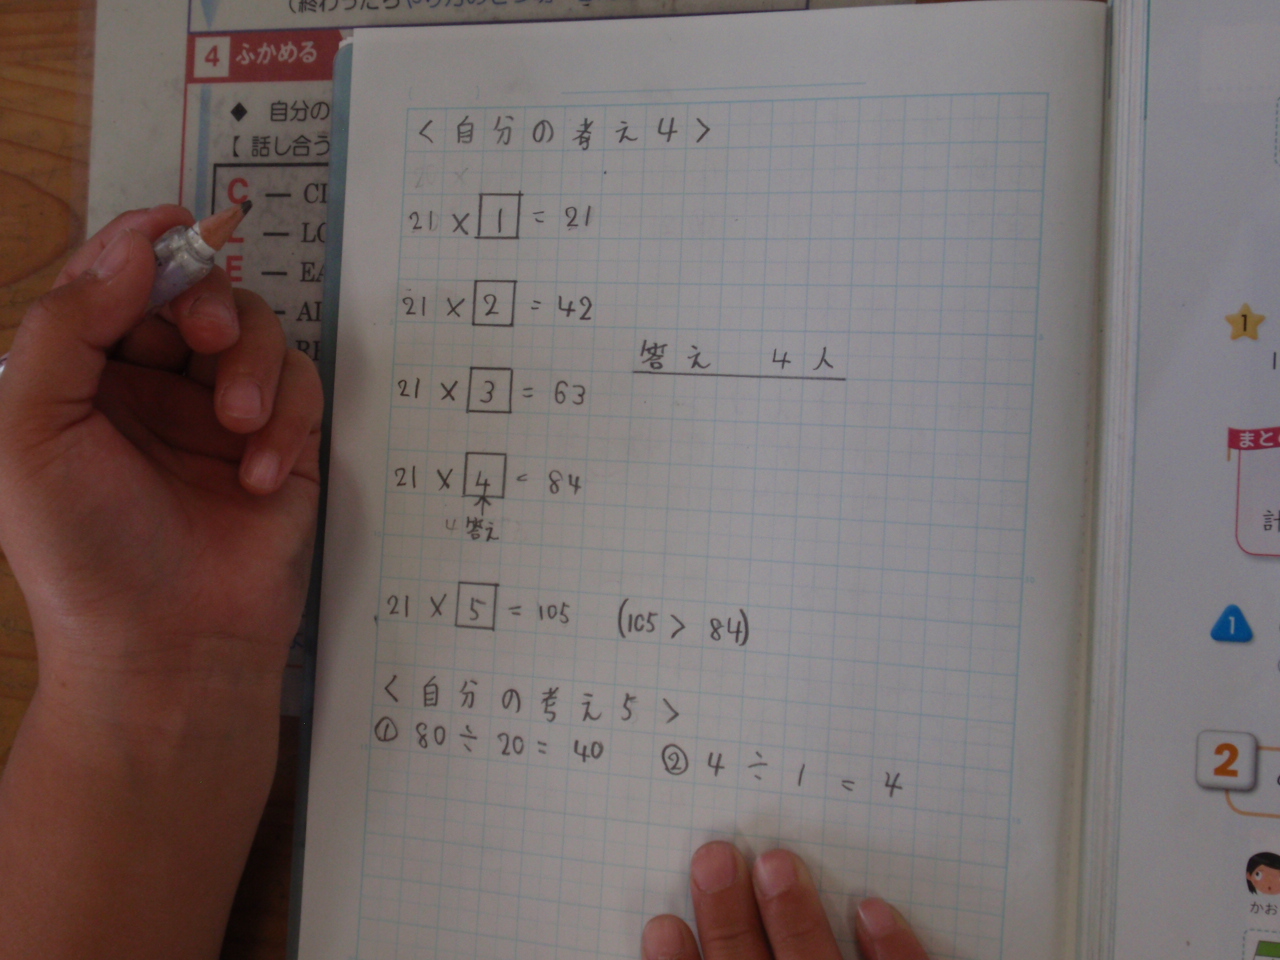 4 ふかめる
◆ 自分の
【 話し合う
C — CI
— LO
E — EA
— AI
<自分の考え4>
21 × 1 = 21
21 × 2 = 42
答え 4人
21 × 3 = 63
21 × 4 = 84
↑
4 答え
21 × 5 = 105 (105 > 84)
<自分の考え5>
① 80 ÷ 20 = 40 ② 4 ÷ 1 = 4
1
まと
計
1
2
かお